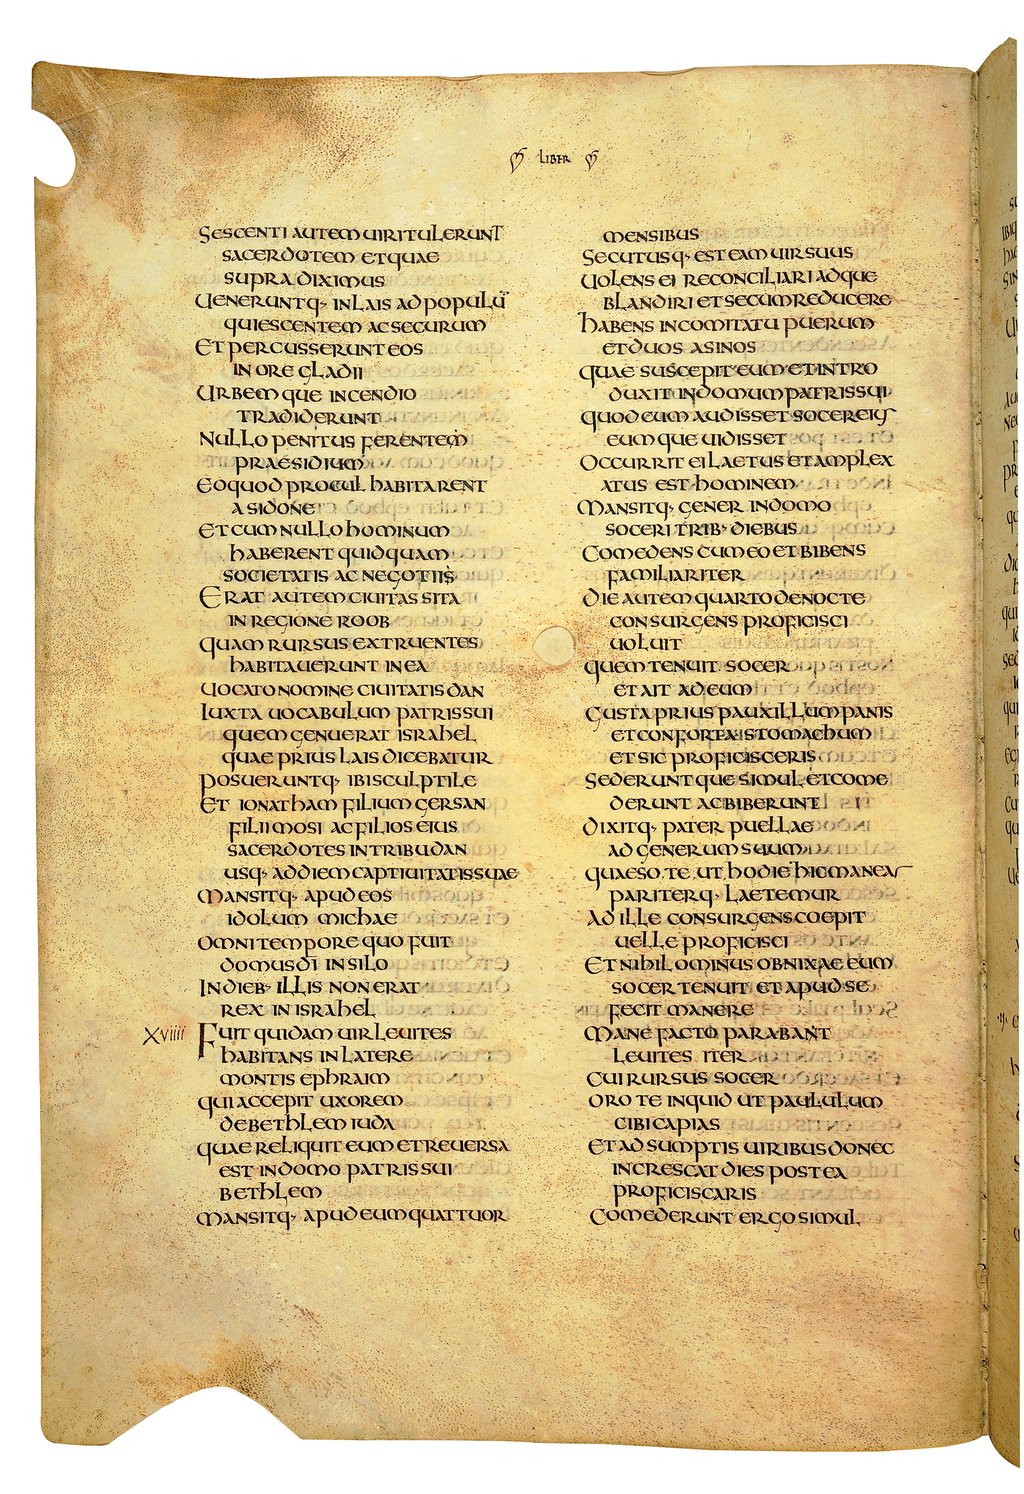 LIBER
SESCENTI AUTEM UIRI TULERUNT
SACERDOTEM ET QUAE
SUPRA DIXIMUS
UENERUNTQ· IN LAIS AD POPULŪ
QUIESCENTEM AC SECURUM
ET PERCUSSERUNT EOS
IN ORE GLADII
URBEMQUE INCENDIO
TRADIDERUNT
NULLO PENITUS FERENTEM
PRAESIDIUM
EO QUOD PROCUL HABITARENT
A SIDONE
ET CUM NULLO HOMINUM
HABERENT QUIDQUAM
SOCIETATIS AC NEGOTIIS
ERAT AUTEM CIUITAS SITA
IN REGIONE ROOB
QUAM RURSUS EXTRUENTES
HABITAUERUNT IN EA
UOCATO NOMINE CIUITATIS DAN
IUXTA UOCABULUM PATRIS SUI
QUEM GENUERAT ISRAHEL
QUAE PRIUS LAIS DICEBATUR
POSUERUNTQ· IBI SCULPTILE
ET IONATHAM FILIUM GERSAN
FILII MOSI AC FILIOS EIUS
SACERDOTES IN TRIBU DAN
USQ· AD DIEM CAPTIUITATIS SUAE
MANSITQ· APUD EOS
IDOLUM MICHAE
OMNI TEMPORE QUO FUIT
DOMUS DĪ IN SILO
IN DIEB· ILLIS NON ERAT
REX IN ISRAHEL
XVIIII FUIT QUIDAM UIR LEUITES
HABITANS IN LATERE
MONTIS EPHRAIM
QUI ACCEPIT UXOREM
DE BETHLEM IUDA
QUAE RELIQUIT EUM ET REUERSA
EST IN DOMO PATRIS SUI
BETHLEM
MANSITQ· APUD EUM QUATTUOR
MENSIBUS
SECUTUSQ· EST EAM UIR SUUS
UOLENS EI RECONCILIARI ADQUE
BLANDIRI ET SECUM REDUCERE
HABENS IN COMITATU PUERUM
ET DUOS ASINOS
QUAE SUSCEPIT EUM ET INTRO
DUXIT IN DOMUM PATRIS SUI
QUOD EUM AUDISSET SOCER EIUS
EUMQUE UIDISSET
OCCURRIT EI LAETUS ET AMPLEX
ATUS EST HOMINEM
MANSITQ· GENER IN DOMO
SOCERI TRIB· DIEBUS
COMEDENS CUM EO ET BIBENS
FAMILIARITER
DIE AUTEM QUARTO DE NOCTE
CONSURGENS PROFICISCI
UOLUIT
QUEM TENUIT SOCER
ET AIT AD EUM
GUSTA PRIUS PAUXILLUM PANIS
ET CONFORTA STOMACHUM
ET SIC PROFICISCERIS
SEDERUNTQUE SIMUL ET COME
DERUNT AC BIBERUNT
DIXITQ· PATER PUELLAE
AD GENERUM SUUM
QUAESO TE UT HODIE HIC MANEAS
PARITERQ· LAETEMUR
AD ILLE CONSURGENS COEPIT
UELLE PROFICISCI
ET NIHILOMINUS OBNIXAE EUM
SOCER TENUIT ET APUD SE
FECIT MANERE
MANE FACTO PARABANT
LEUITES ITER
CUI RURSUS SOCER
ORO TE INQUID UT PAULULUM
CIBI CAPIAS
ET ADSUMPTIS UIRIBUS DONEC
INCRESCAT DIES POSTEA
PROFICISCARIS
COMEDERUNT ERGO SIMUL